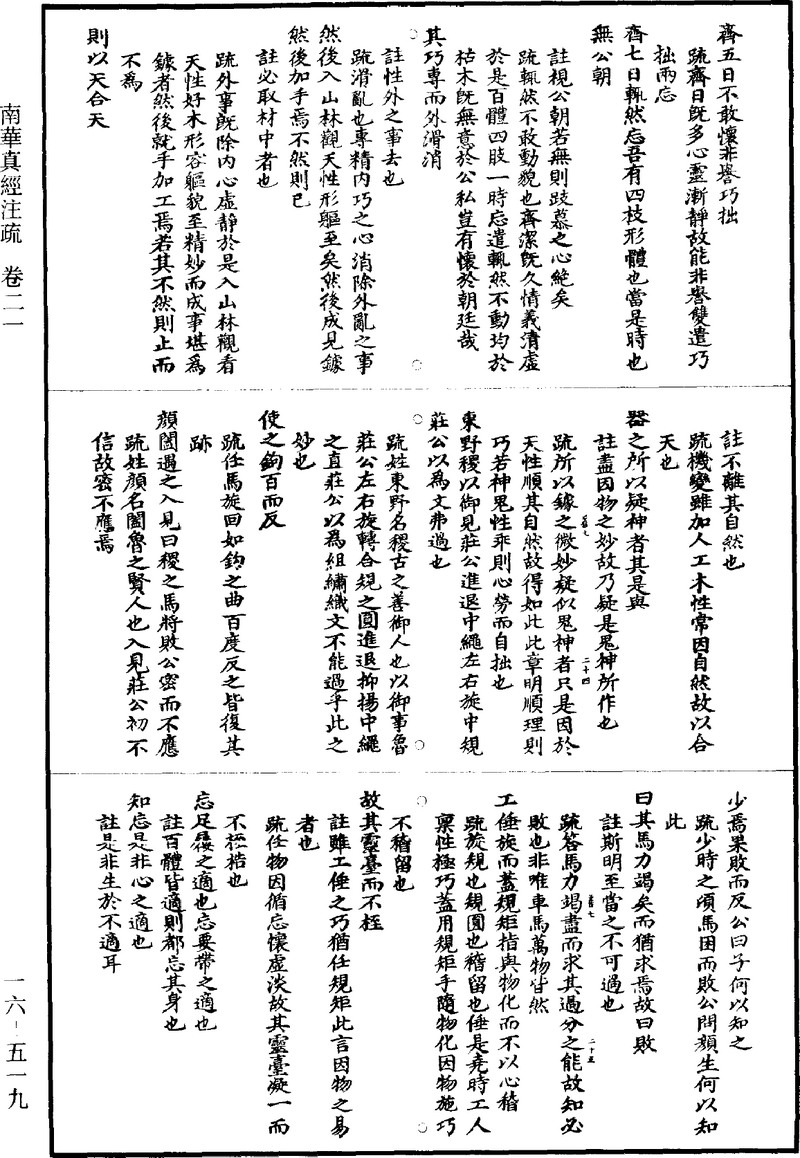 齊五日不敢懷非譽巧拙
疏齊日既多心靈漸靜故能非譽雙遣巧
拙兩忘
齊七日輒然忘吾有四枝形體也當是時也
無公朝
註視公朝若無則跂慕之心絶矣
疏輒然不敢動貌也齊潔既久情義清虛
於是百體四肢一時忘遣輒然不動均於
枯木既無意於公私豈有懷於朝廷哉
其巧專而外滑消
註性外之事去也
疏滑亂也專精内巧之心消除外亂之事
然後入山林觀天性形軀至矣然後成見鐻
然後加手焉不然則已
註必取材中者也
疏外事既除内心虛靜於是入山林觀看
天性好木形容軀貌至精妙而成事堪為
鐻者然後就手加工焉若其不然則止而
不為
則以天合天
註不離其自然也
疏機變雖加人工木性常因自然故以合
天也
器之所以疑神者其是與
註盡因物之妙故乃疑是鬼神所作也
疏所以鐻之微妙疑似鬼神者只是因於
天性順其自然故得如此此章明順理則
巧若神鬼性乖則心勞而自拙也
東野稷以御見莊公進退中繩左右旋中規
莊公以為文弗過也
疏姓東野名稷古之善御人也以御事魯
莊公左右旋轉合規之圓進退抑揚中繩
之直莊公以為組繡織文不能過乎此之
妙也
使之鉤百而反
疏任馬旋回如鉤之曲百度反之皆復其
跡
顔闔遇之入見曰稷之馬將敗公密而不應
疏姓顔名闔魯之賢人也入見莊公初不
信故密不應焉
少焉果敗而反公曰子何以知之
疏少時之頃馬困而敗公問顔生何以知
此
曰其馬力竭矣而猶求焉故曰敗
註斯明至當之不可過也
疏答馬力竭盡而求其過分之能故知必
敗也非唯車馬萬物皆然
工倕旋而蓋規矩指與物化而不以心稽
疏旋規也規圓也稽留也倕是堯時工人
稟性極巧蓋用規矩手隨物化因物施巧
不稽留也
故其靈臺而不桎
註雖工倕之巧猶任規矩此言因物之易
者也
疏任物因循忘懷虛淡故其靈臺凝一而
不桎梏也
忘足屨之適也忘要帶之適也
註百體皆適則都忘其身也
知忘是非心之適也
註是非生於不適耳
南華真經注疏 卷二一
一六-五一九